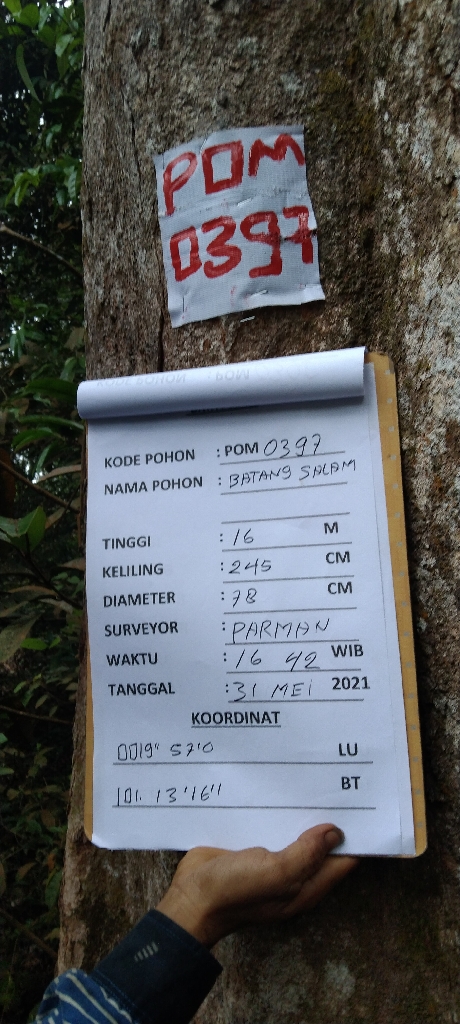 POM
0397
KODE POHON : POM 0397
NAMA POHON : BATANG SALAM
TINGGI : 16 M
KELILING : 245 CM
DIAMETER : 78 CM
SURVEYOR : PARMAN
WAKTU : 16 42 WIB
TANGGAL : 31 MEI 2021
KOORDINAT
0019" 57'0 LU
101. 13'16" BT